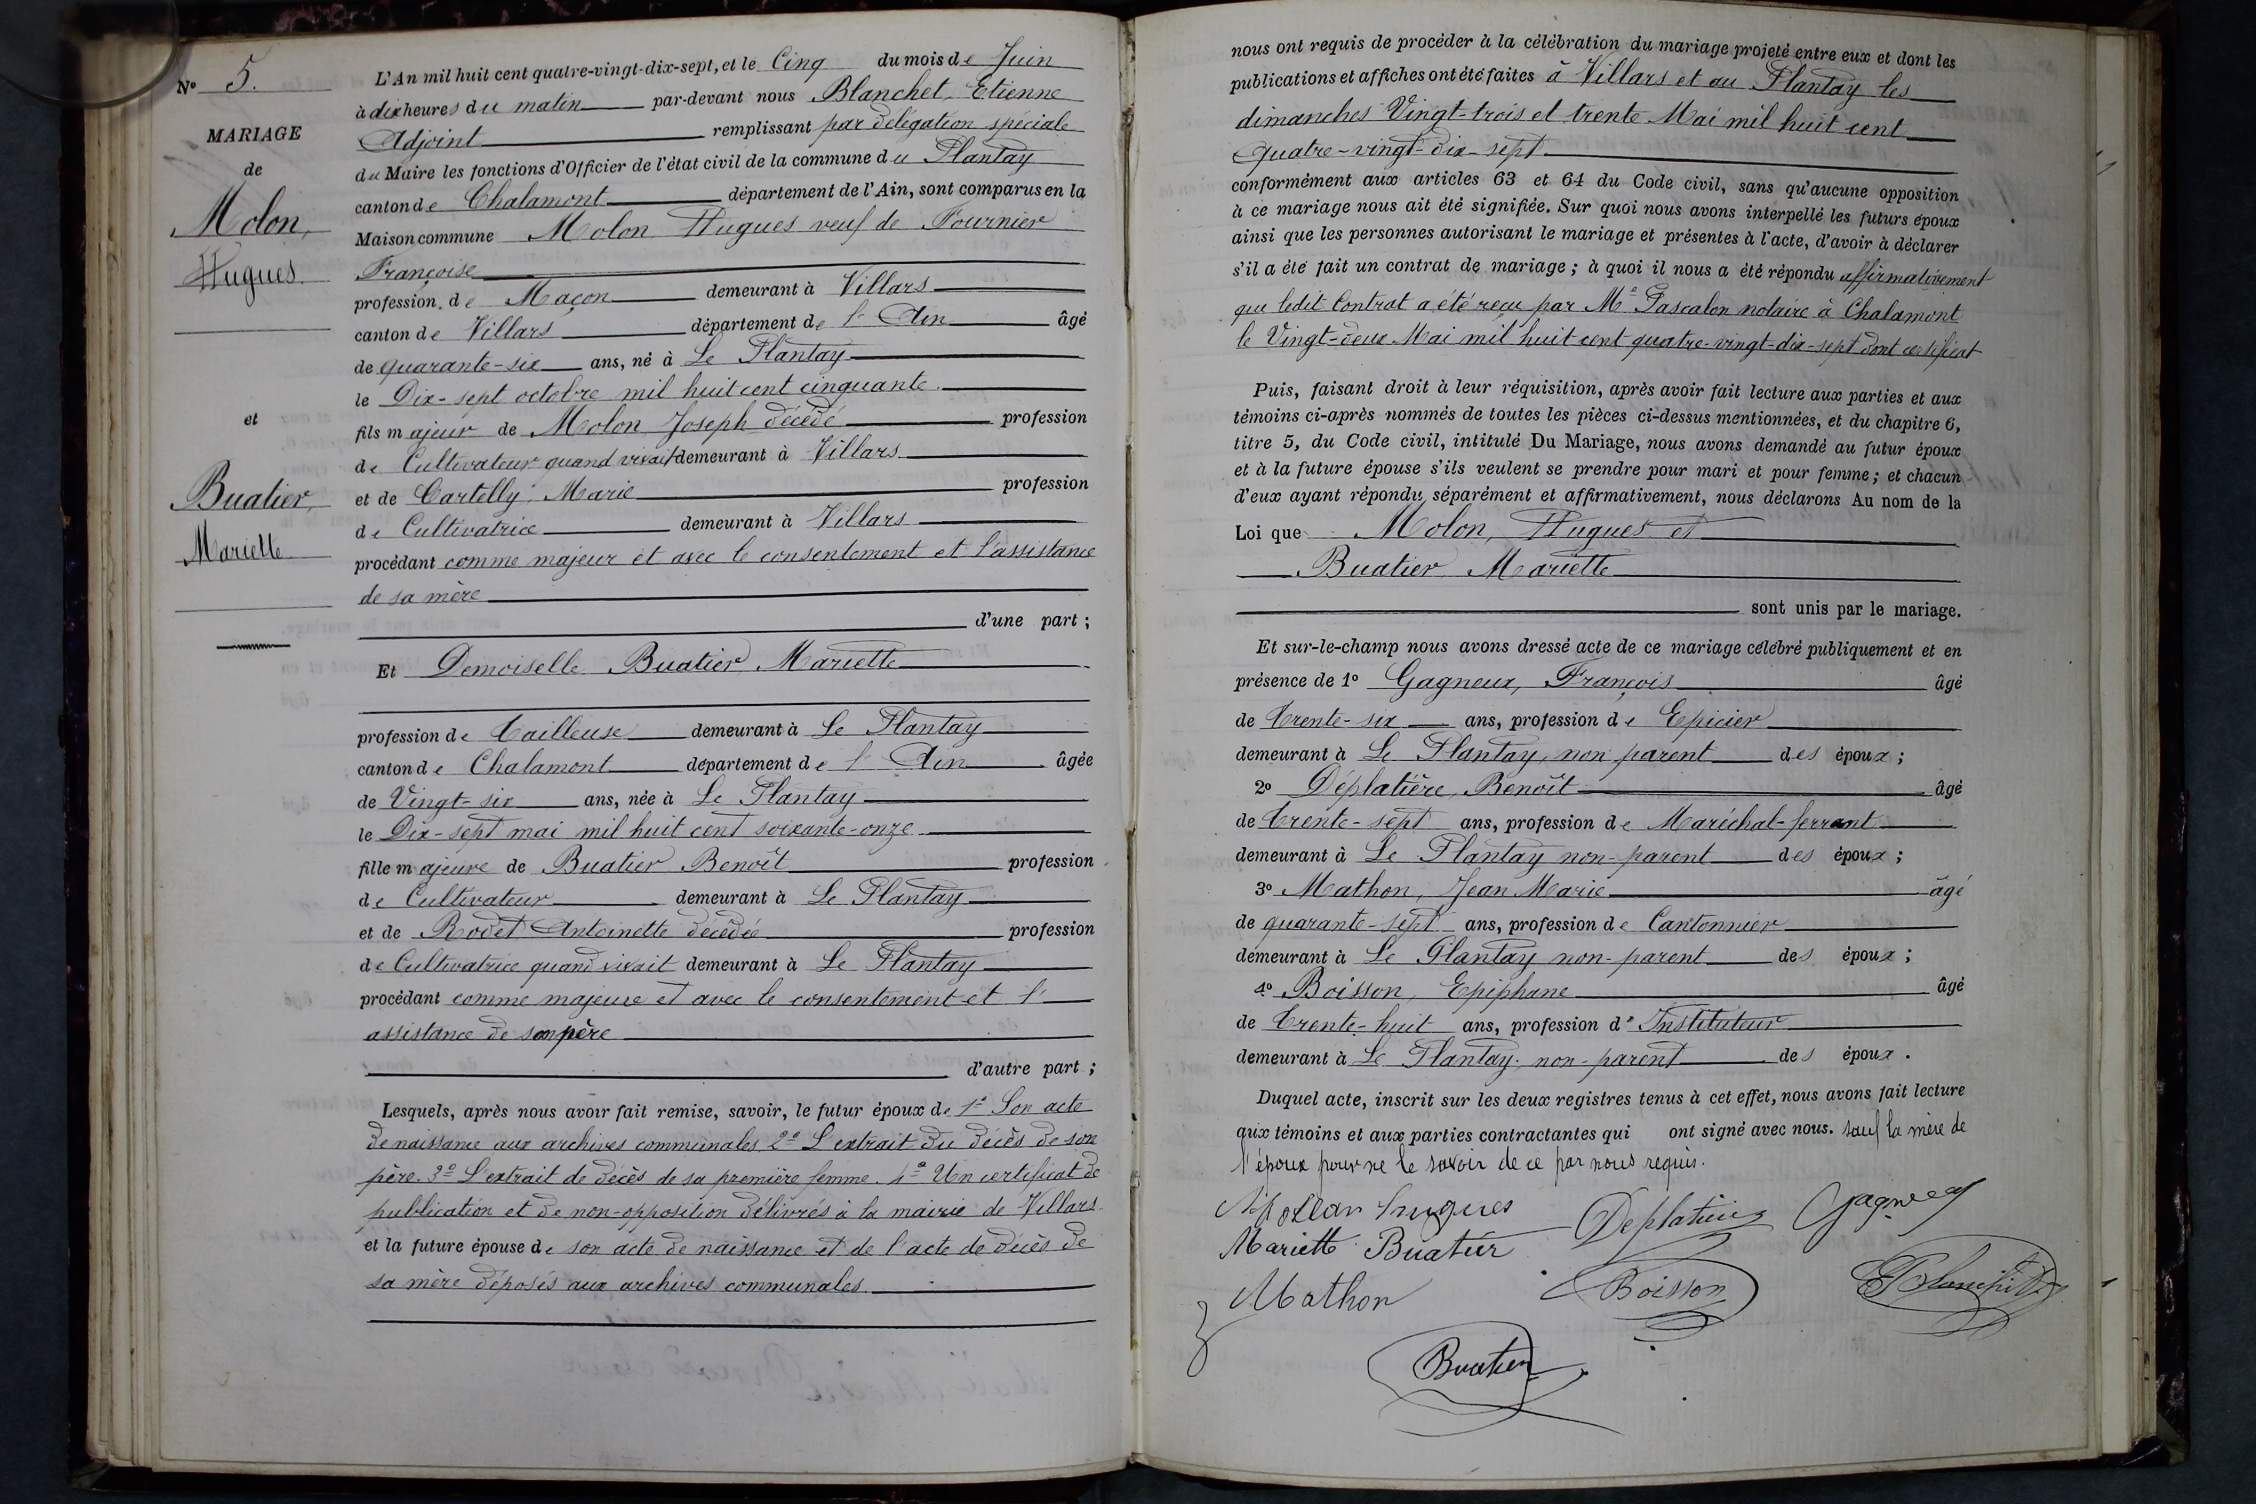 Nº 5.
MARIAGE
de
Molon,
Hugues
et
Buatier,
Mariette
L'An mil huit cent quatre-vingt-dix-sept, et le Cinq du mois de Juin
à dix heures du matin par-devant nous Blanchet, Etienne
Adjoint remplissant par délégation spéciale
du Maire les fonctions d'Officier de l'état civil de la commune du Plantay
canton de Chalamont département de l'Ain, sont comparus en la
Maison commune Molon Hugues veuf de Fournier
Françoise
profession de Maçon demeurant à Villars
canton de Villars département de l'Ain âgé
de quarante-six ans, né à Le Plantay
le Dix-sept octobre mil huit cent cinquante
fils majeur de Molon Joseph décédé profession
de Cultivateur quand vivait demeurant à Villars
et de Cartelly Marie profession
de Cultivatrice demeurant à Villars
procédant comme majeur et avec le consentement et l'assistance
de sa mère
d'une part ;
Et Demoiselle Buatier Mariette
profession de Tailleuse demeurant à Le Plantay
canton de Chalamont département de l'Ain âgée
de Vingt-six ans, née à Le Plantay
le Dix-sept mai mil huit cent soixante-onze
fille majeure de Buatier Benoît profession
de Cultivateur demeurant à Le Plantay
et de Rodet Antoinette décédée profession
de Cultivatrice quand vivait demeurant à Le Plantay
procédant comme majeure et avec le consentement et l'
assistance de son père
d'autre part ;
Lesquels, après nous avoir fait remise, savoir, le futur époux de 1º Son acte
de naissance aux archives communales 2º L'extrait du décès de son
père. 3º L'extrait de décès de sa première femme. 4º Un certificat de
publication et de non-opposition délivrés à la mairie de Villars
et la future épouse de son acte de naissance et de l'acte de décès de
sa mère déposés aux archives communales
nous ont requis de procéder à la célébration du mariage projeté entre eux et dont les
publications et affiches ont été faites à Villars et au Plantay les
dimanches Vingt-trois et trente Mai mil huit cent
quatre-vingt-dix-sept
conformément aux articles 63 et 64 du Code civil, sans qu'aucune opposition
à ce mariage nous ait été signifiée. Sur quoi nous avons interpellé les futurs époux
ainsi que les personnes autorisant le mariage et présentes à l'acte, d'avoir à déclarer
s'il a été fait un contrat de mariage ; à quoi il nous a été répondu affirmativement
que ledit Contrat a été reçu par Me Pascalon notaire à Chalamont
le Vingt-deux Mai mil huit cent quatre-vingt-dix-sept dont certificat
Puis, faisant droit à leur réquisition, après avoir fait lecture aux parties et aux
témoins ci-après nommés de toutes les pièces ci-dessus mentionnées, et du chapitre 6,
titre 5, du Code civil, intitulé Du Mariage, nous avons demandé au futur époux
et à la future épouse s'ils veulent se prendre pour mari et pour femme ; et chacun
d'eux ayant répondu séparément et affirmativement, nous déclarons Au nom de la
Loi que Molon, Hugues et
Buatier Mariette
sont unis par le mariage.
Et sur-le-champ nous avons dressé acte de ce mariage célébré publiquement et en
présence de 1º Gagneux, François âgé
de trente-six ans, profession de Epicier
demeurant à Le Plantay, non parent des époux ;
2º Déplatière, Benoît âgé
de trente-sept ans, profession de Maréchal-ferrant
demeurant à Le Plantay non-parent des époux ;
3º Mathon, Jean Marie âgé
de quarante-sept ans, profession de Cantonnier
demeurant à Le Plantay non-parent des époux ;
4º Boisson, Epiphane âgé
de trente-huit ans, profession d'Instituteur
demeurant à Le Plantay non-parent des époux.
Duquel acte, inscrit sur les deux registres tenus à cet effet, nous avons fait lecture
aux témoins et aux parties contractantes qui ont signé avec nous. sauf la mère de
l'époux pour ne le savoir de ce par nous requis.
hugues Deplatière Gagneux
Mariette Buatier
Mathon Boisson E Blanchet
Buatier